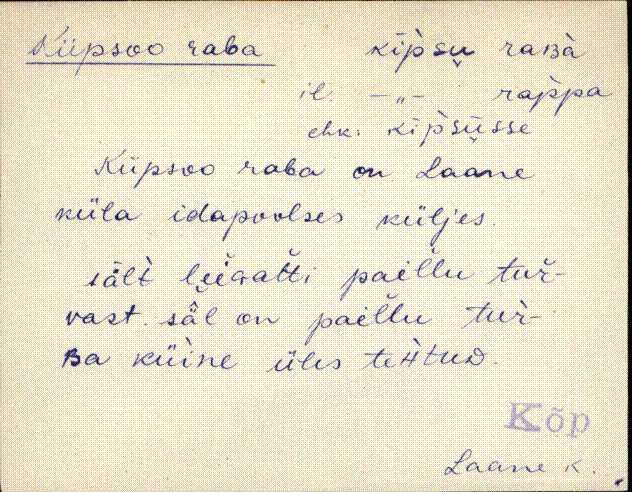 Küpsoo raba kìpsu raʙà
il. —„— rap̀pa
ehk. kìpsùsse
Küpsoo raba on Laane
küla idapoolses küljes.
sält̀ lèiɢatti paiĺlu tuŕ-
vast. säl on paiĺlu tuŕ-
ʙa küìne üles teʜtuᴅ.
Kõp
Laane k.